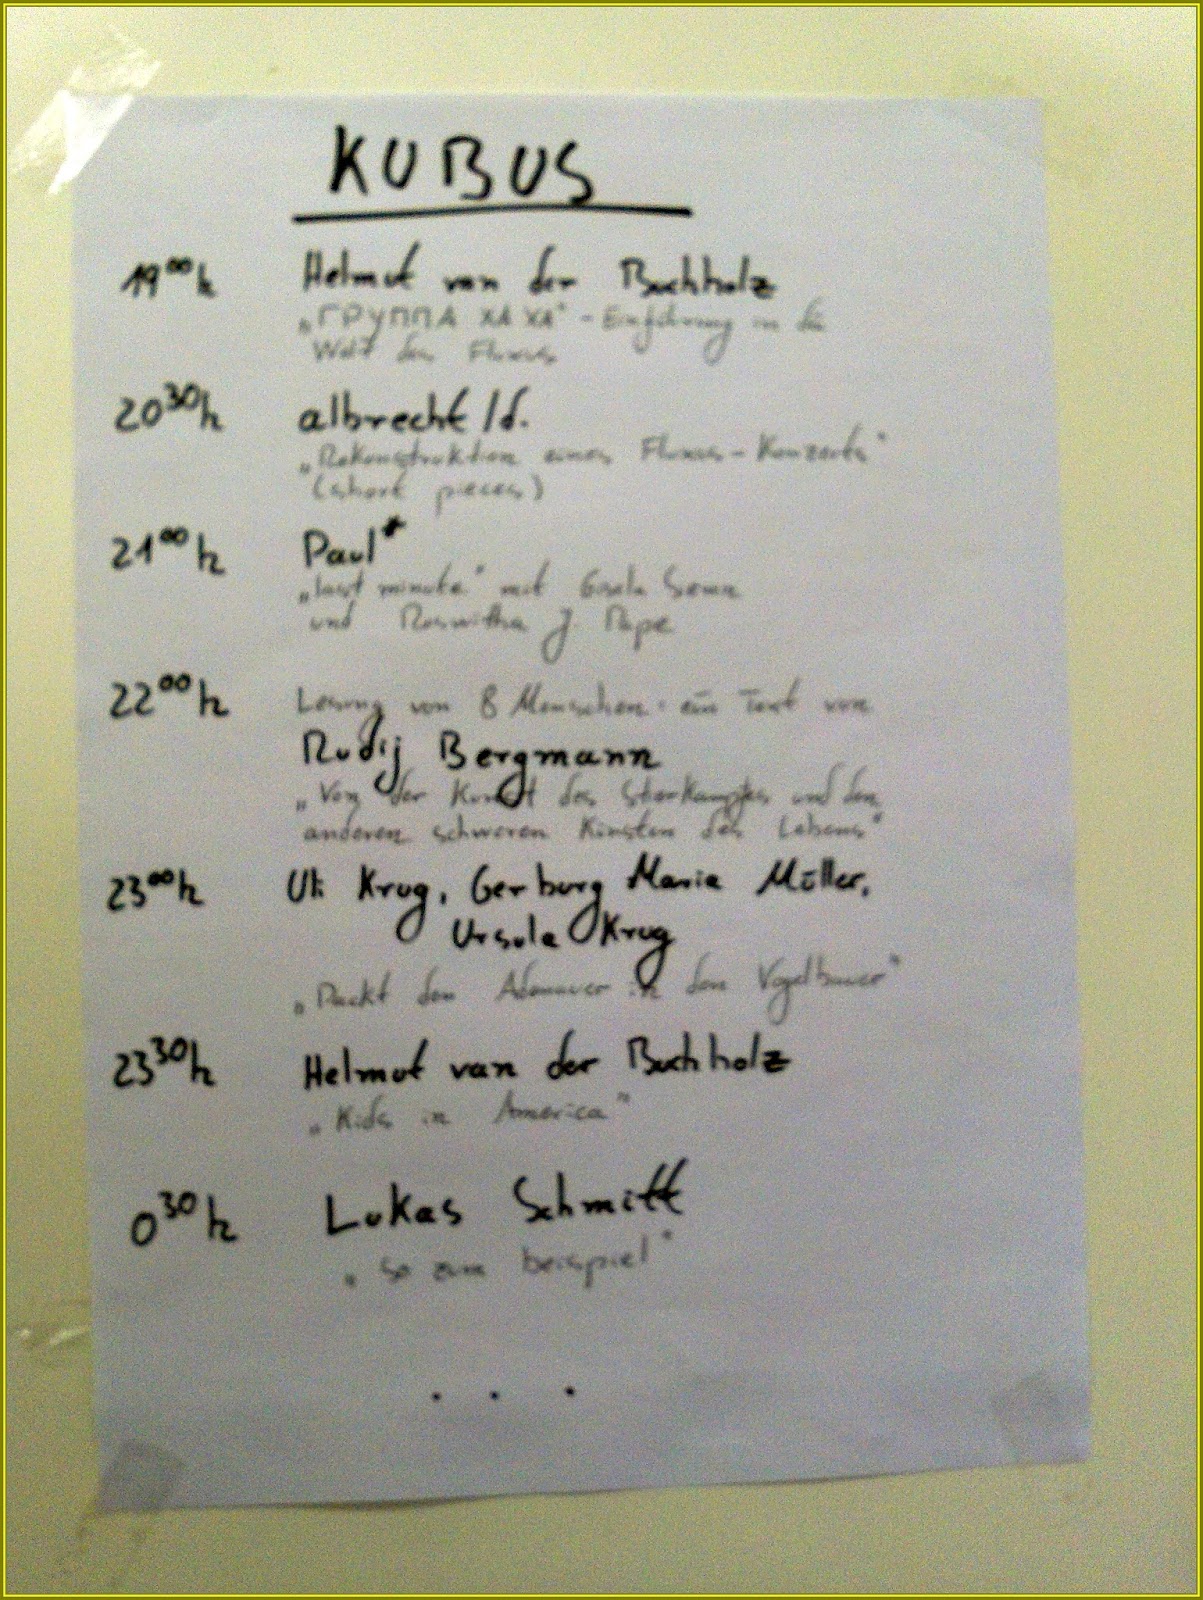 KUBUS
19⁰⁰h Helmut van der Buchholz
„ГРУППА ХА ХА" - Einführung in die
Welt des Fluxus
20³⁰h albrecht/d.
„Rekonstruktion eines Fluxus-Konzerts"
(short pieces)
21⁰⁰h Paul*
„last minute" mit Gisela
und Roswitha J. Pape
22⁰⁰h Lesung von 8 Menschen: ein Text von
Rudij Bergmann
„Von der Kunst des Starkampfes und den
anderen schweren Künsten des Lebens"
23⁰⁰h Uli Krug, Gerburg Maria Müller,
Ursula Krug
„Packt den Adenauer in den Vogelbauer"
23³⁰h Helmut van der Buchholz
„Kids in America"
0³⁰h Lukas Schmitt
„so zum beispiel"
. . .